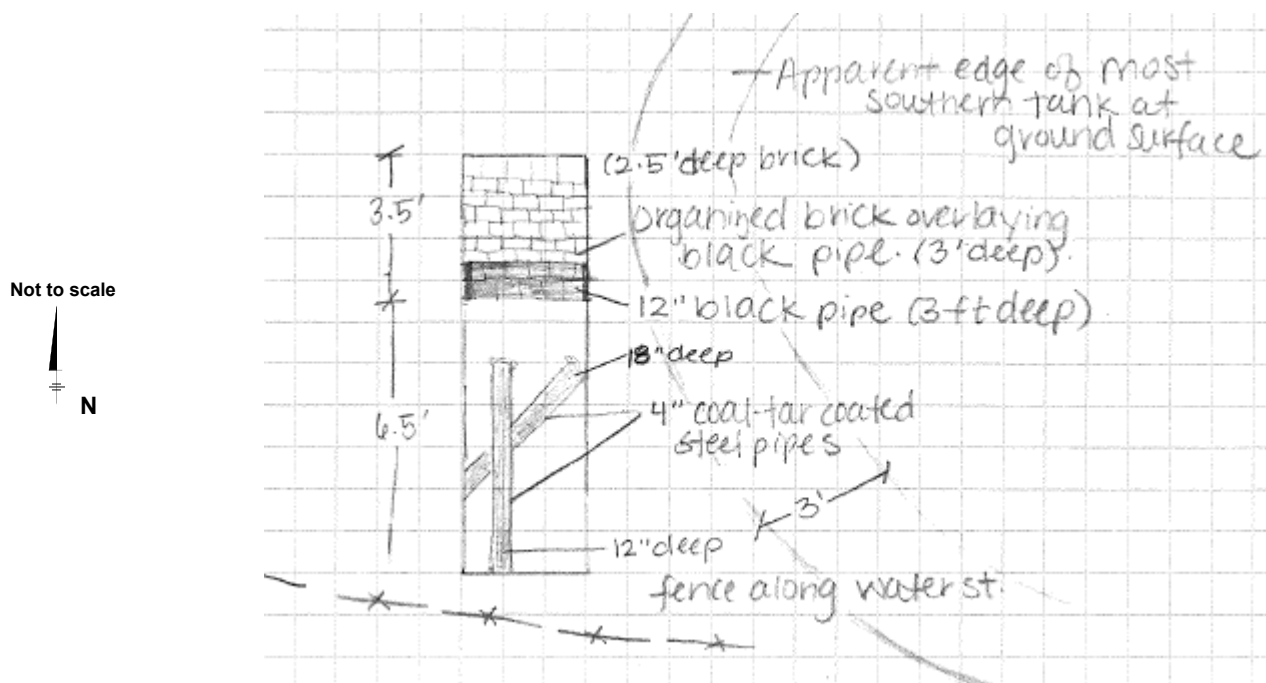 Apparent edge of most
southern tank at
ground surface
(2.5' deep brick)
3.5'
organized brick overlaying
black pipe. (3' deep).
Not to scale
12" black pipe (3-ft deep)
18" deep
N
4" coal-tar coated
steel pipes
6.5'
3'
12" deep
fence along water st.